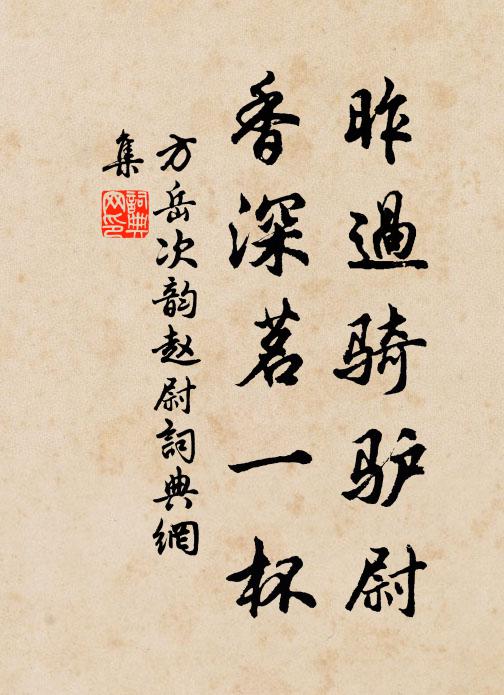 昨過骑驴尉
香深茗一杯
方岳次韵赵尉詞典網
集
詞典
网印